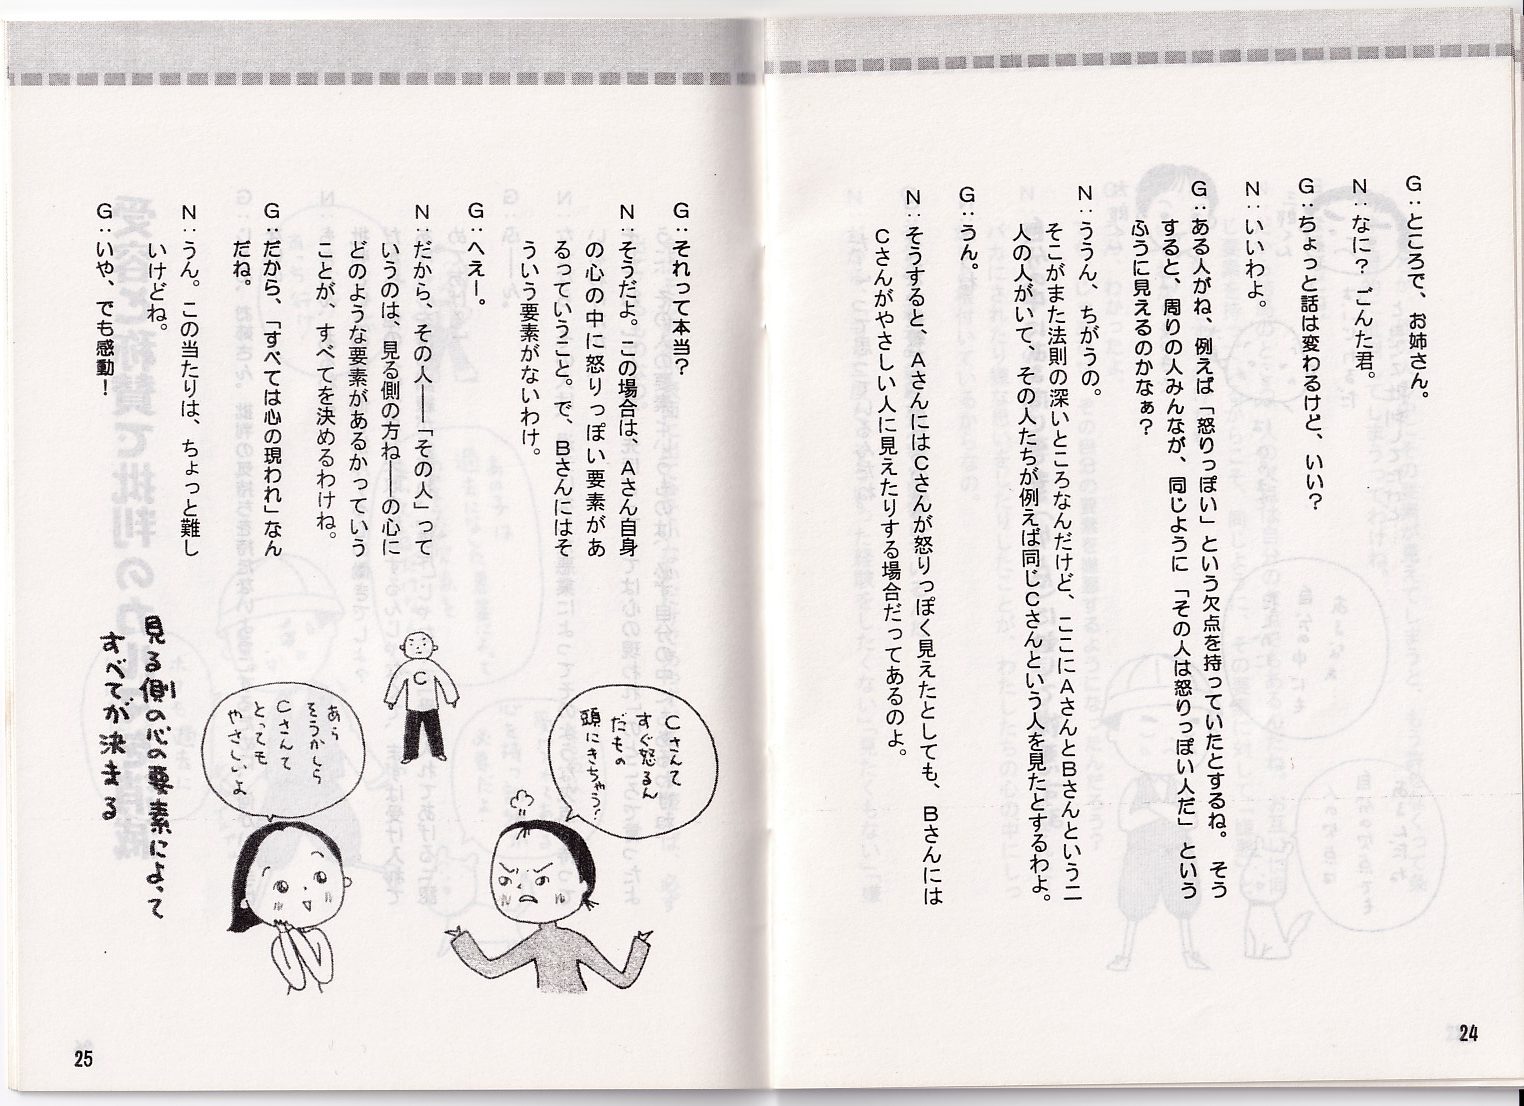 G：ところで、お姉さん。
N：なに？ごんた君。
G：ちょっと話は変わるけど、いい？
N：いいわよ。
G：ある人がね、例えば「怒りっぽい」という欠点を持っていたとするね。そう
すると、周りの人みんなが、同じように「その人は怒りっぽい人だ」という
ふうに見えるのかなぁ？
N：ううん、ちがうの。
そこがまた法則の深いところなんだけど、ここにAさんとBさんという二
人の人がいて、その人たちが例えば同じCさんという人を見たとするわよ。
G：うん。
N：そうすると、AさんにはCさんが怒りっぽく見えたとしても、Bさんには
Cさんがやさしい人に見えたりする場合だってあるのよ。
24
G：それって本当？
N：そうだよ。この場合は、Aさん自身
の心の中に怒りっぽい要素があ
るっていうこと。で、Bさんにはそ
ういう要素がないわけ。
G：へえー。
N：だから、その人――「その人」って
いうのは、見る側の方ね――の心に
どのような要素があるかっていう
ことが、すべてを決めるわけね。
G：だから、「すべては心の現われ」なん
だね。
N：うん。この当たりは、ちょっと難し
いけどね。
G：いや、でも感動！
Cさんて
すぐ怒るん
だもの
頭にきちゃう？
C
あら
そうかしら
Cさんて
とっても
やさしいよ
見る側の心の要素によって
すべてが決まる
25